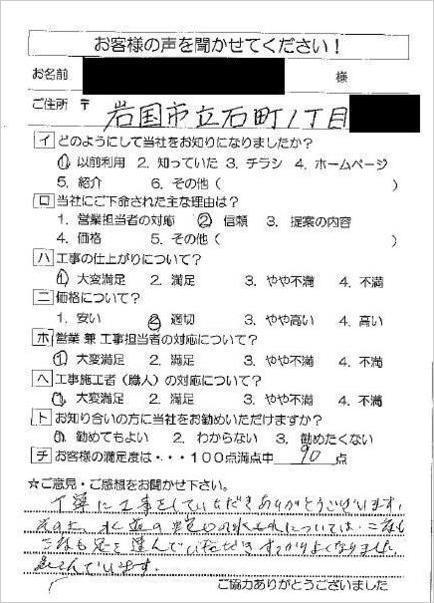 お客様の声を聞かせてください！
お名前 様
ご住所 〒 岩国市立石町1丁目
イ どのようにして当社をお知りになりましたか？
1. 以前利用 2. 知っていた 3. チラシ 4. ホームページ
5. 紹介 6. その他（ ）
ロ 当社にご下命された主な理由は？
1. 営業担当者の対応 2. 信頼 3. 提案の内容
4. 価格 5. その他（ ）
ハ 工事の仕上がりについて？
1. 大変満足 2. 満足 3. やや不満 4. 不満
ニ 価格について？
1. 安い 2. 適切 3. やや高い 4. 高い
ホ 営業 兼 工事担当者の対応について？
1. 大変満足 2. 満足 3. やや不満 4. 不満
ヘ 工事施工者（職人）の対応について？
1. 大変満足 2. 満足 3. やや不満 4. 不満
ト お知り合いの方に当社をお勧めいただけますか？
1. 勧めてもよい 2. わからない 3. 勧めたくない
チ お客様の満足度は・・・100点満点中 90 点
☆ご意見・ご感想をお聞かせ下さい。
丁寧に工事をしていただきありがとうございます。
水道の水もれについては、二度も
三度も足を運んでいただきすっかりよくなりました。
喜んでいます。
ご協力ありがとうございました